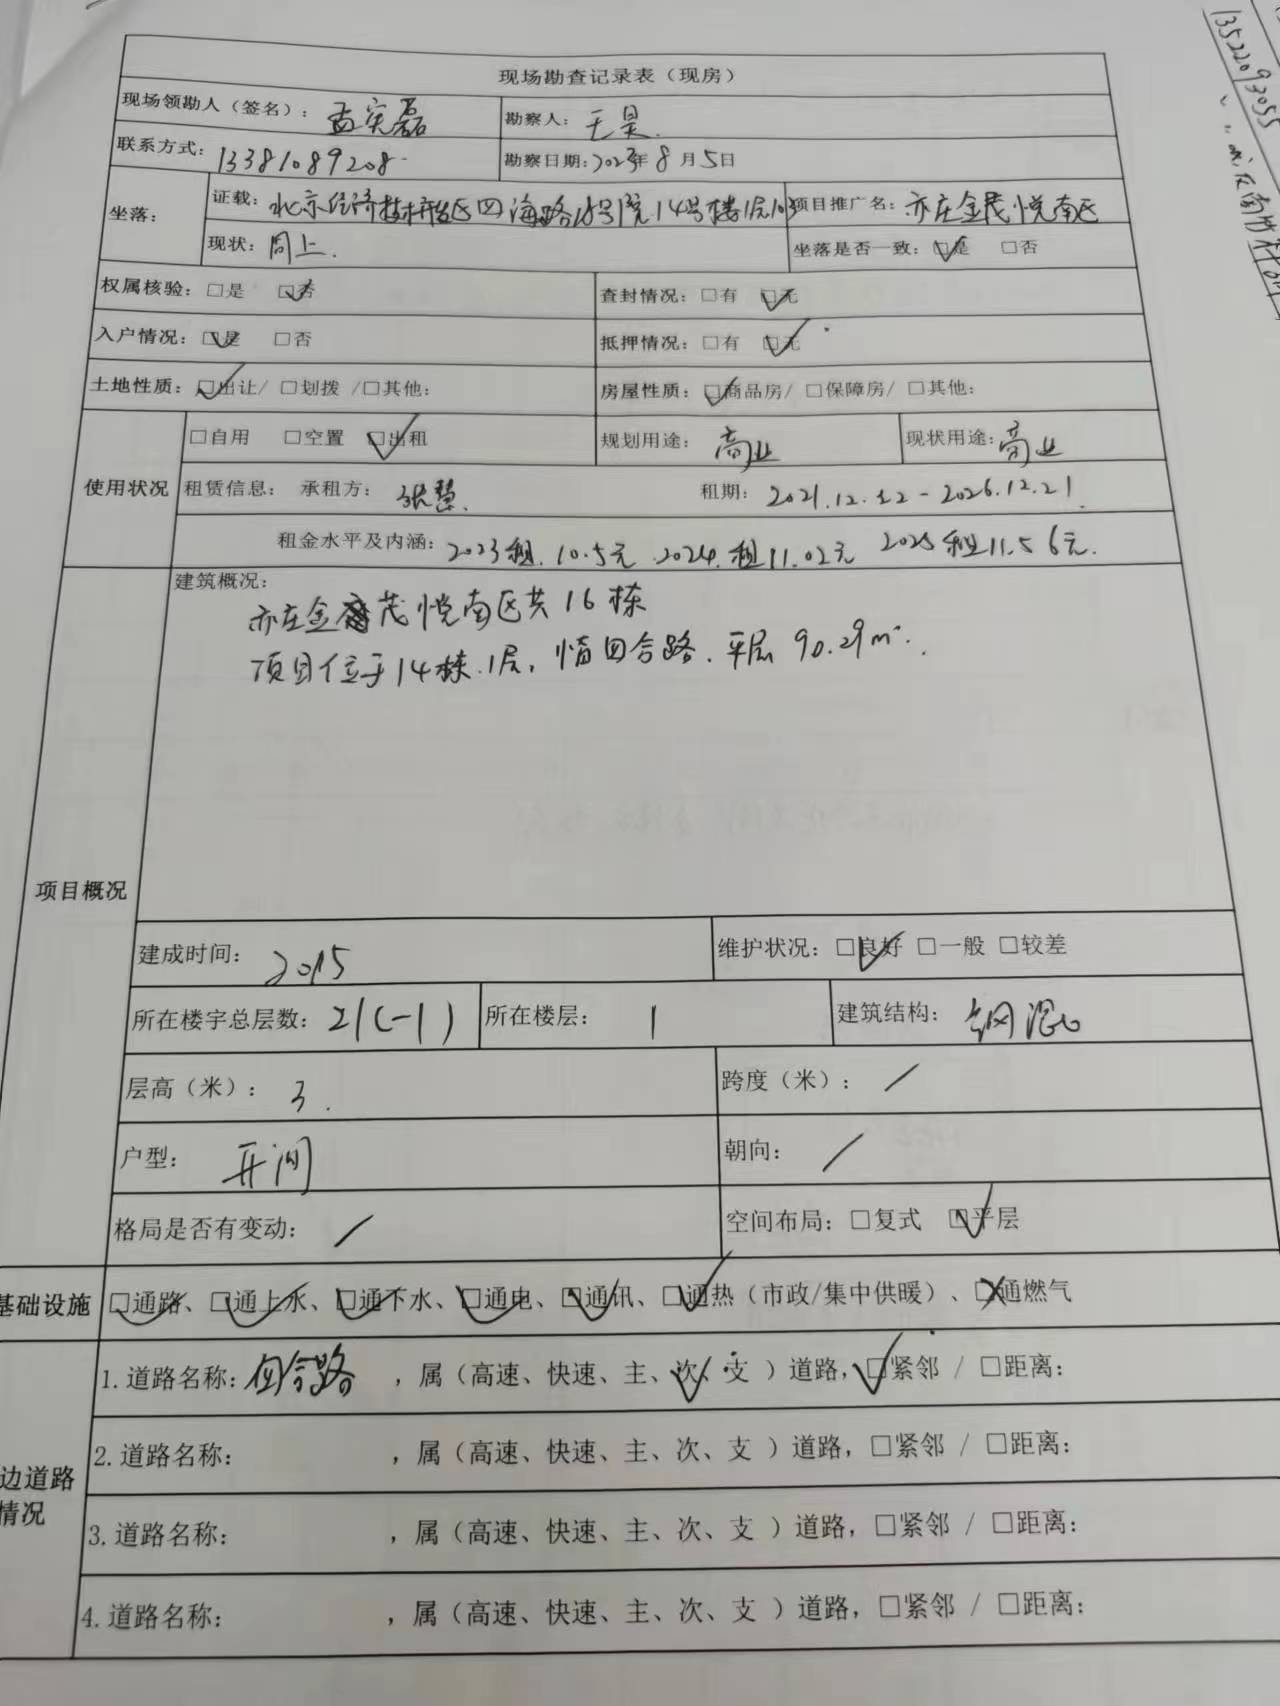 现场勘查记录表（现房）
现场领勘人（签名）：孟实磊 勘察人：王昊.
联系方式：13381089208. 勘察日期:2023年8月5日
坐落： 证载：北京经济技术开发区四海路 号1院.14号楼1层103 项目推广名：亦庄金茂悦南区
现状：同上. 坐落是否一致：☑是 □否
权属核验：□是 ☑否 查封情况：□有 ☑无
入户情况：☑是 □否 抵押情况：□有 ☑无
土地性质：☑出让/ □划拨 /□其他： 房屋性质：☑商品房/ □保障房/ □其他：
使用状况 □自用 □空置 ☑出租 规划用途：商业 现状用途：商业
租赁信息： 承租方：张慧. 租期：2021.12.22-2026.12.21
租金水平及内涵：2023租.10.5元.2024.租11.02元 2025租11.56元.
项目概况 建筑概况：
亦庄金茂悦南区共16栋
项目位于14栋.1层, 临四合路.平层 90.29m².
建成时间：2015 维护状况：☑良好 □一般 □较差
所在楼宇总层数：21(-1) 所在楼层：1 建筑结构：钢混
层高（米）：3. 跨度（米）：/
户型：开间 朝向：/
格局是否有变动：/ 空间布局：□复式 ☑平层
基础设施 ☑通路、☑通上水、☑通下水、☑通电、☑通讯、☑通热（市政/集中供暖）、☒通燃气
边道路情况 1.道路名称：四合路 ，属（高速、快速、主、次✓、支 ）道路，☑紧邻 / □距离：
2.道路名称： ，属（高速、快速、主、次、支 ）道路，□紧邻 / □距离：
3.道路名称： ，属（高速、快速、主、次、支 ）道路，□紧邻 / □距离：
4.道路名称： ，属（高速、快速、主、次、支 ）道路，□紧邻 / □距离：
13522093055